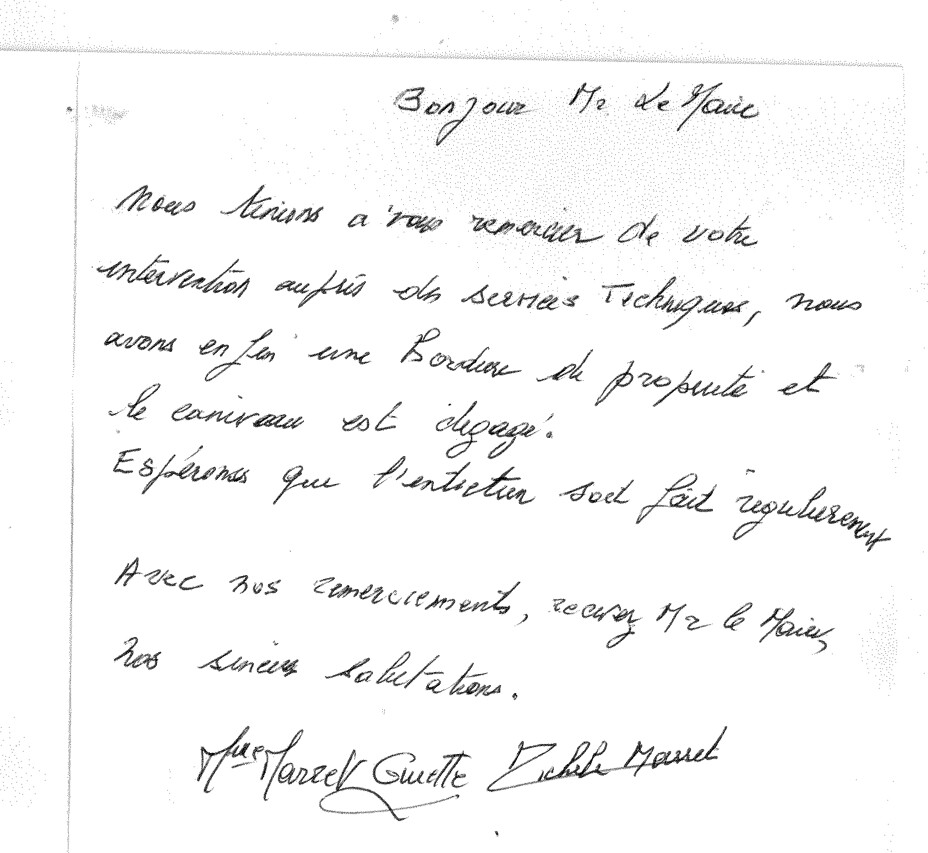 Bonjour Mr Le Maire
Nous tenions a vous remercier de votre
intervention auprès des services Techniques, nous
avons enfin une Bordure de propreté et
le caniveau est dégagé.
Espérons que l'entretien soit fait regulierement
Avec nos remerciements, recevez Mr le Maire,
nos sincères salutations.
Mme